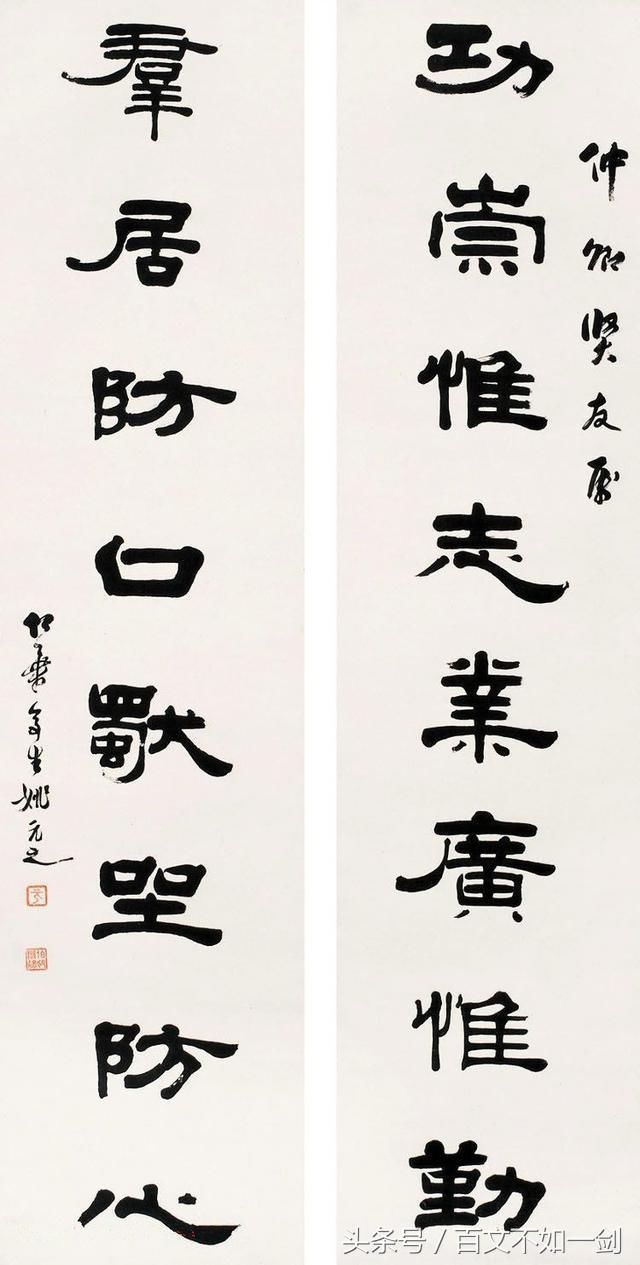 仲卿賢友屬
功崇惟志業廣惟勤
羣居防口獨坐防心
竹葉亭生姚元之
头条号 / 百文不如一剑